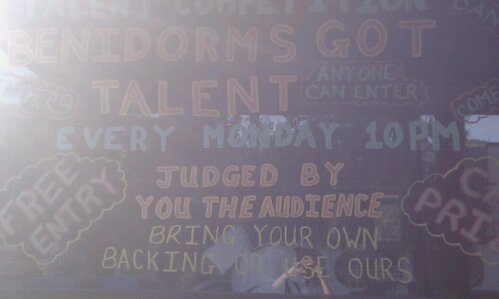 TALENT COMPETITION
BENIDORMS GOT
TALENT
ANYONE
CAN ENTER
EVERY MONDAY 10PM
JUDGED BY
YOU THE AUDIENCE
FREE
ENTRY
BRING YOUR OWN
BACKING OR USE OURS